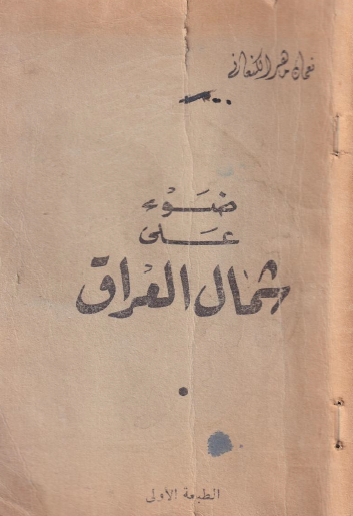 نعمان ماهر الكنعاني
ضَوْء
عَلى
شمال العراق
الطبعة الأولى